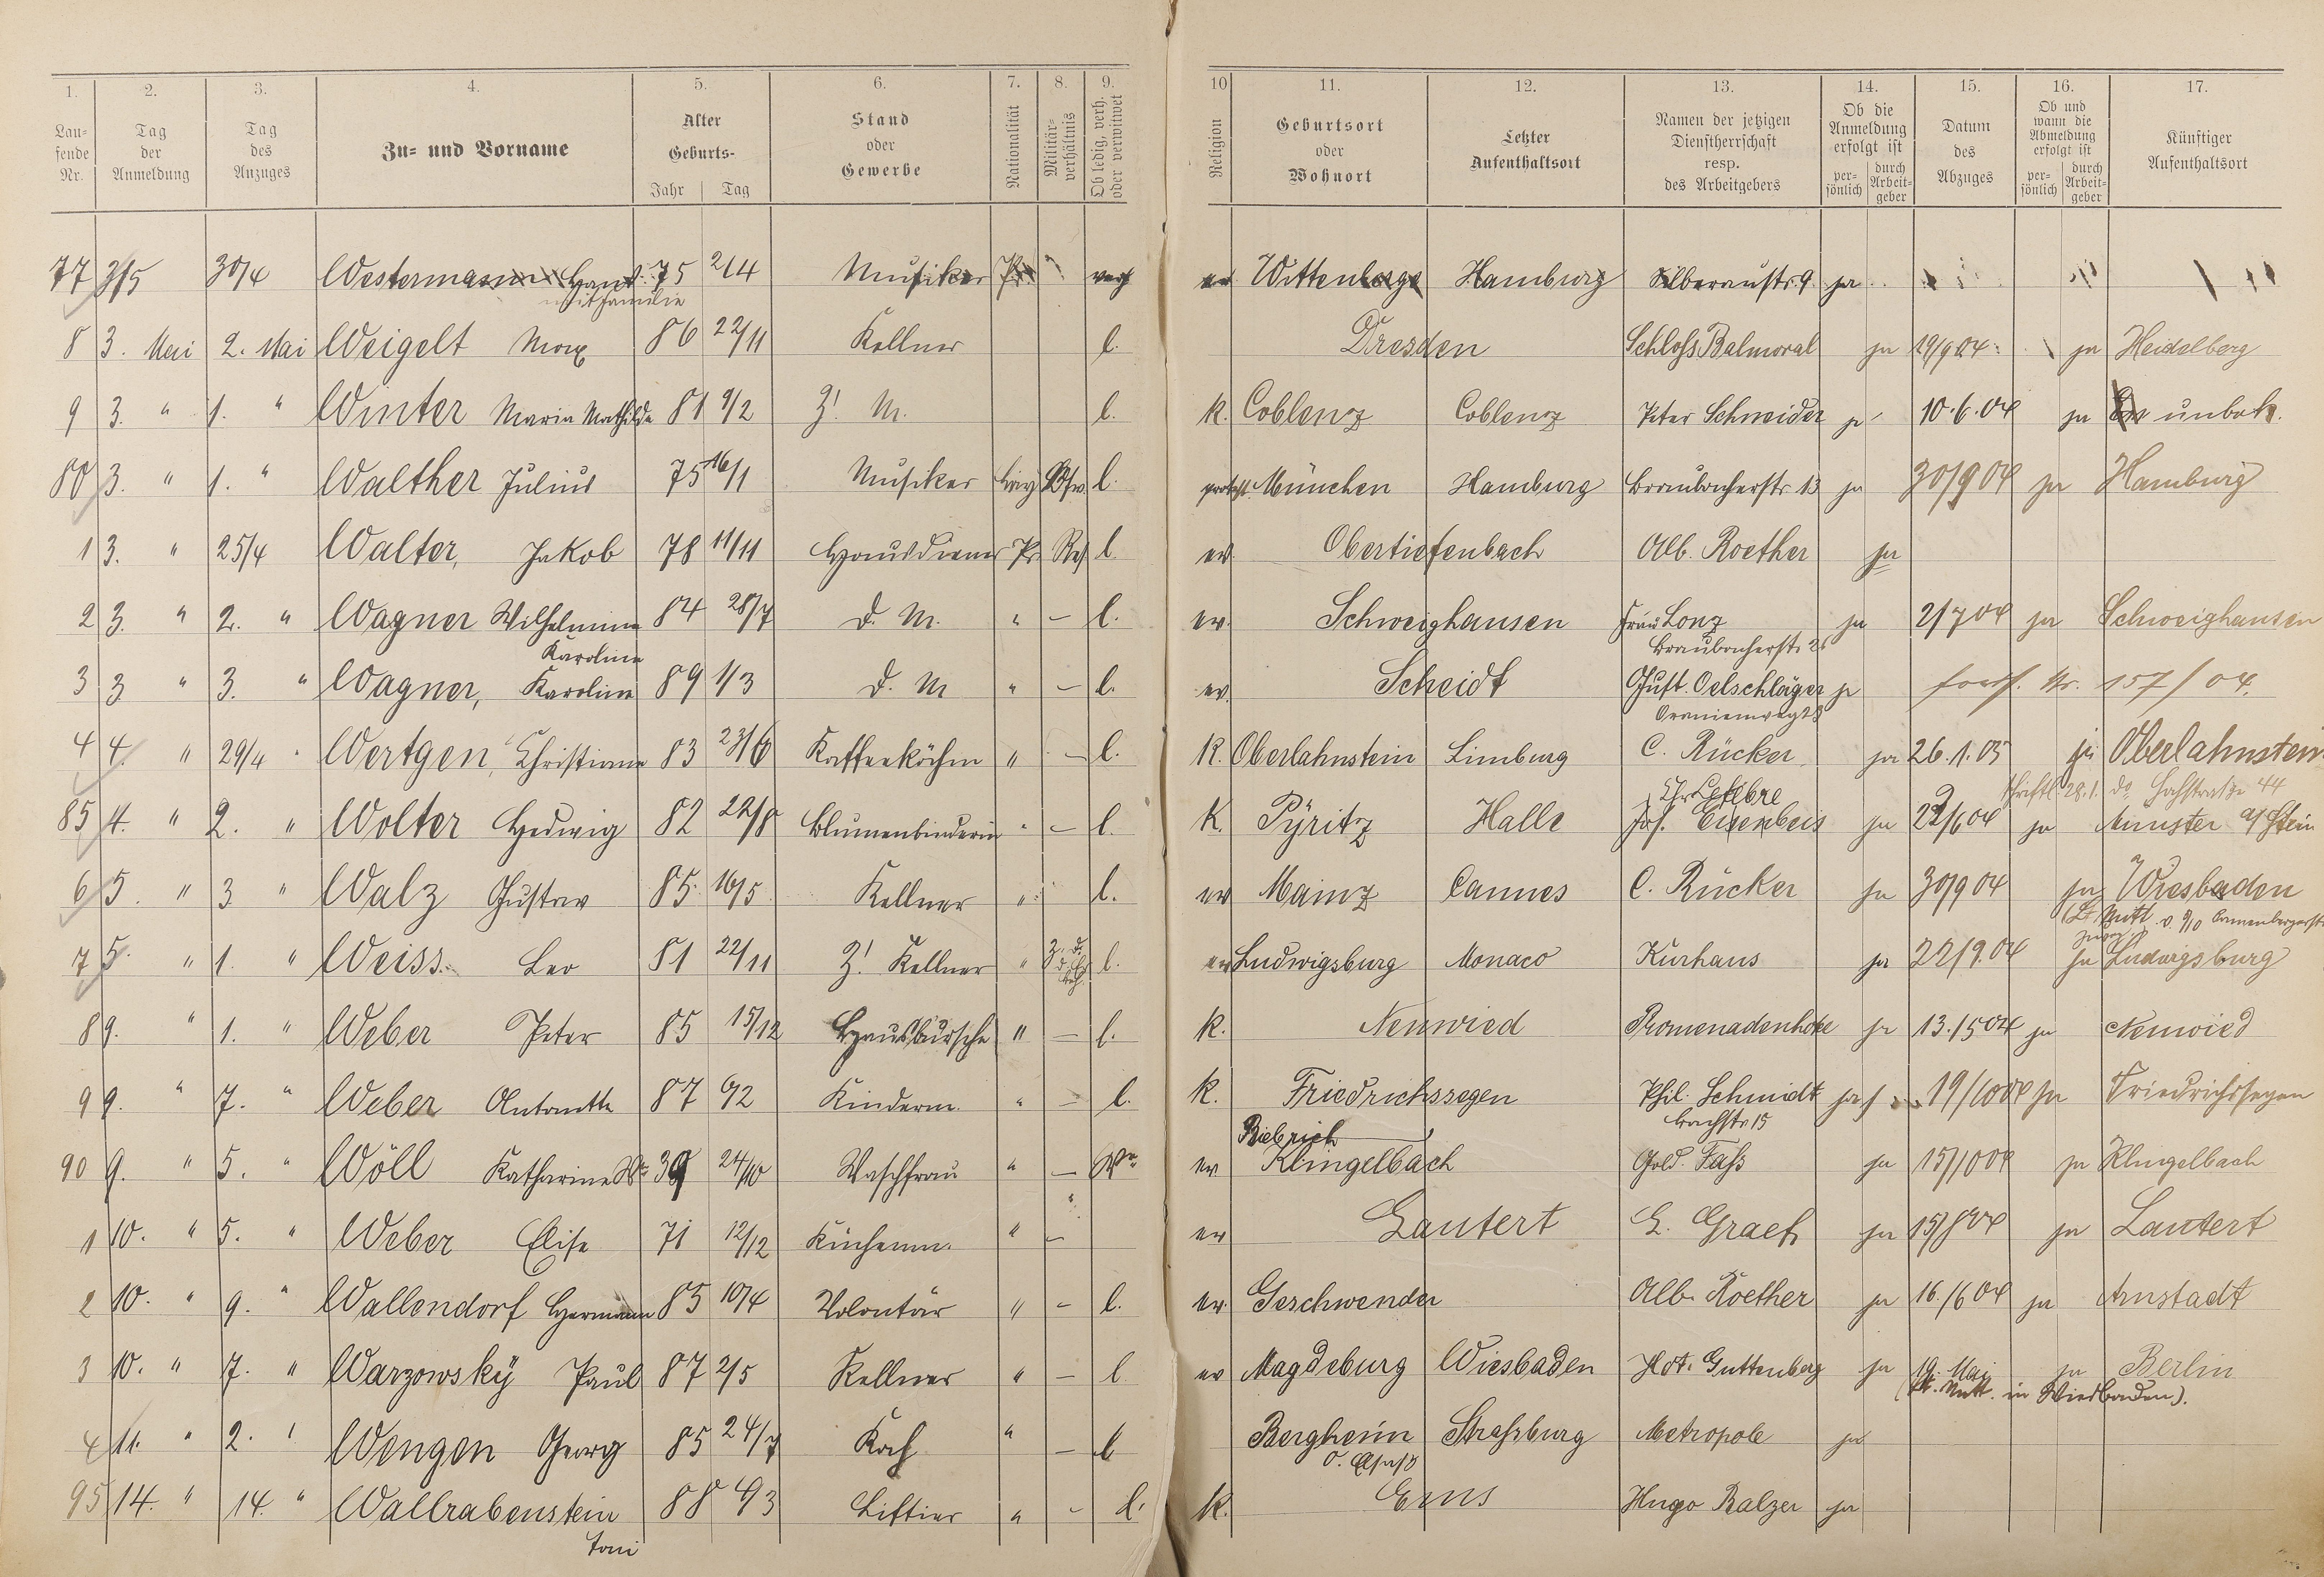 1. 2. 3. 4. 5. 6. 7. 8. 9. 10 11. 12. 13. 14. 15. 16. 17.
Laufende Nr.
Tag der Anmeldung
Tag des Anzuges
Zu- und Vorname
Alter Geburts- Jahr Tag
Stand oder Gewerbe
Nationalität
Militärverhältnis
Ob ledig, verh. oder verwitwet
Religion
Geburtsort oder Wohnort
Letzter Aufenthaltsort
Namen der jetzigen Dienstherrschaft resp. des Arbeitgebers
Ob die Anmeldung erfolgt ist persönlich durch Arbeitgeber
Datum des Abzuges
Ob und wann die Abmeldung erfolgt ist persönlich durch Arbeitgeber
Künftiger Aufenthaltsort
77 3/5 30/4 Westermann 75 2/4 Musiker Pr. verh ev Wittenberge Hamburg Silberaustr. 9 ja
mit Familie
8 3. Mai 2. Mai Weigelt Max 86 22/11 Kellner l. Dresden Schloß Balmoral ja 19/9 04 ja Heidelberg
9 3. " 1. " Winter Maria Mathilde 81 9/2 Z. M. l. k. Coblenz Coblenz Peter Schneider ja 10.6.04 ja unbek.
80 3. " 1. " Walther Julius 75 16/1 Musiker l. protest. München Hamburg Braubacherstr. 13 ja 30/9 04 ja Hamburg
1 3. " 25/4 Walter, Jakob 78 11/11 Hausdiener Pr. Res. l ev. Obertiefenbach Alb. Roether ja
2 3. " 2. " Wagner Wilhelmine 84 28/7 d. M. " – l. ev. Schweighausen Frau Lonz ja 2/7 04 ja Schweighausen
Karoline Braubacherstr. 2
3 3 " 3. " Wagner, Karoline 89 1/3 d. M " – l. ev. Scheidt Gust. Oelschläger ja Nr. 157/04.
Oranienweg 28
4 4. " 29/4 Wertgen, Christiane 83 23/6 Kaffeeköchin " – l. k. Oberlahnstein Limburg C. Rücker ja 26.1.05 ja Oberlahnstein
28.1. Hochstraße 44
Chr Lefebre
85 4. " 2. " Wolter Hedwig 82 22/8 Blumenbinderin " – l. k. Pyritz Halle Jos. Eisenbeis ja 22/6 04 ja Münster a/Stein
6 5. " 3 " Walz Gustav 85. 16/5 Kellner " l. ev Mainz Cannes C. Rücker ja 30/9 04 ja Wiesbaden
7 5. " 1. " Weiss Leo 81 22/11 Z. Kellner " l. ev Ludwigsburg Monaco Kurhaus ja 22/9. 04 ja Ludwigsburg
8 9. " 1. " Weber Peter 85 15/12 Hausbursche " – l. k. Neuwied Promenadenhote ja 13./5 04 ja Neuwied
9 9. " 7. " Weber Antonette 87 6/2 Kinderm. " – l. k. Friedrichssegen Phil. Schmidt ja 19/10 04 ja Friedrichssegen
Bachstr 15
Biebrich
90 9. " 5. " Wöll Katharine Wwe 39 24/10 Waschfrau " – Wwe ev Klingelbach Gold. Faß ja 15/10 04 ja Klingelbach
1 10. " 5. " Weber Elise 71 12/12 Küchenm. " – ev Lautert E. Graef ja 15/8 04 ja Lautert
2 10. " 9. " Wallendorf Hermann 85 10/4 Volontär " – l. ev. Geschwender Alb. Roether ja 16./6 04 ja Arnstadt
3 10. " 7. " Warzowsky Paul 87 2/5 Kellner " – l ev Magdeburg Wiesbaden Hot. Guttenberg ja 19. Mai ja Berlin
(lt. Mitt. in Wiesbaden).
4 11. " 2. " Wengen Georg 85 24/7 Koch " – l Bergheim Straßburg Metropole ja
O. Elsaß
95 14. " 14. " Wallrabenstein 88 4/3 Liftier " – l. k. Ems Hugo Balzer ja
Toni